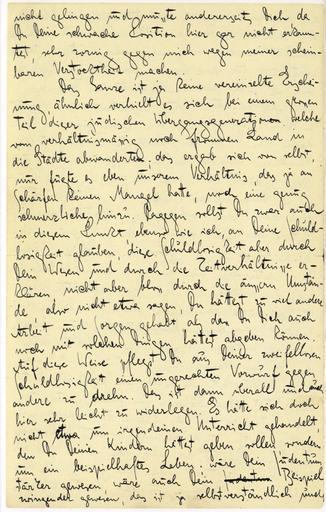 nicht gelingen und musste andererseits Dich da
Du Deine schwache Position hier gar nicht erkann-
test, sehr zornig gegen mich wegen meiner schein-
baren Verstocktheit machen.
Das Ganze ist ja keine vereinzelte Erschei-
nung ähnlich verhielt es sich bei einem grossen
Teil dieser jüdischen Übergangsgeneration welche
vom verhältnismässig noch frommen Land in
die Städte abwanderte, das ergab sich von selbst
nur fügte es eben unserem Verhältnis, das ja an
Schärfen keinen Mangel hatte, noch eine genug
schmerzliche hinzu. Dagegen sollst Du zwar auch
in diesem Punkt ebenso wie ich, an Deine Schuld-
losigkeit glauben, diese Schuldlosigkeit aber durch
Dein Wesen und durch die Zeitverhältnisse er-
klären, nicht aber bloss durch die äussern Umstän-
de, also nicht etwa sagen, Du hättest zu viel andere
Arbeit und Sorgen gehabt als dass Du Dich auch
noch mit solchen Dingen hättest abgeben können.
Auf diese Weise pflegst Du aus Deiner zweifellosen
Schuldlosigkeit einen ungerechten Vorwurf gegen
andere zu drehn. Das ist dann überall und auch
hier sehr leicht zu widerlegen. Es hätte sich doch
nicht etwa um irgendeinen Unterricht gehandelt
den Du Deinen Kindern hättest geben sollen sondern
um ein beispielhaftes Leben; wäre Dein Judentum
stärker gewesen wäre auch Dein Beispiel
zwingender gewesen, das ist ja selbstverständlich und